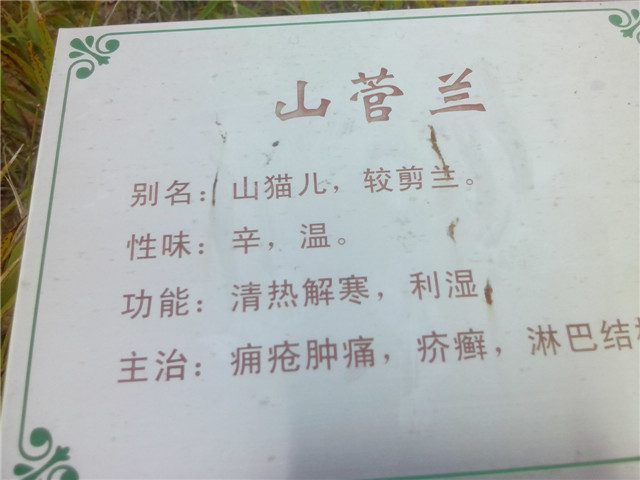 山菅兰
别名：山猫儿，较剪兰。
性味：辛，温。
功能：清热解寒，利湿
主治：痈疮肿痛，疥癣，淋巴结